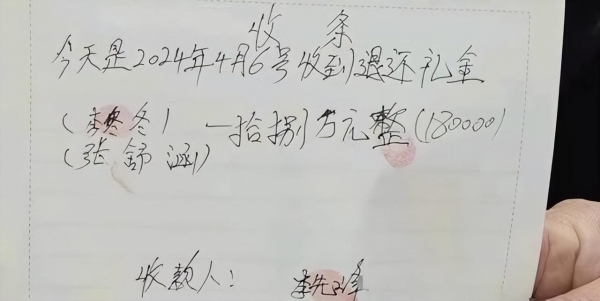 收条
今天是2024年4月6号收到退还礼金
(李冬) 一拾捌万元整(180000)
(张舒涵)
收款人: 李先峰